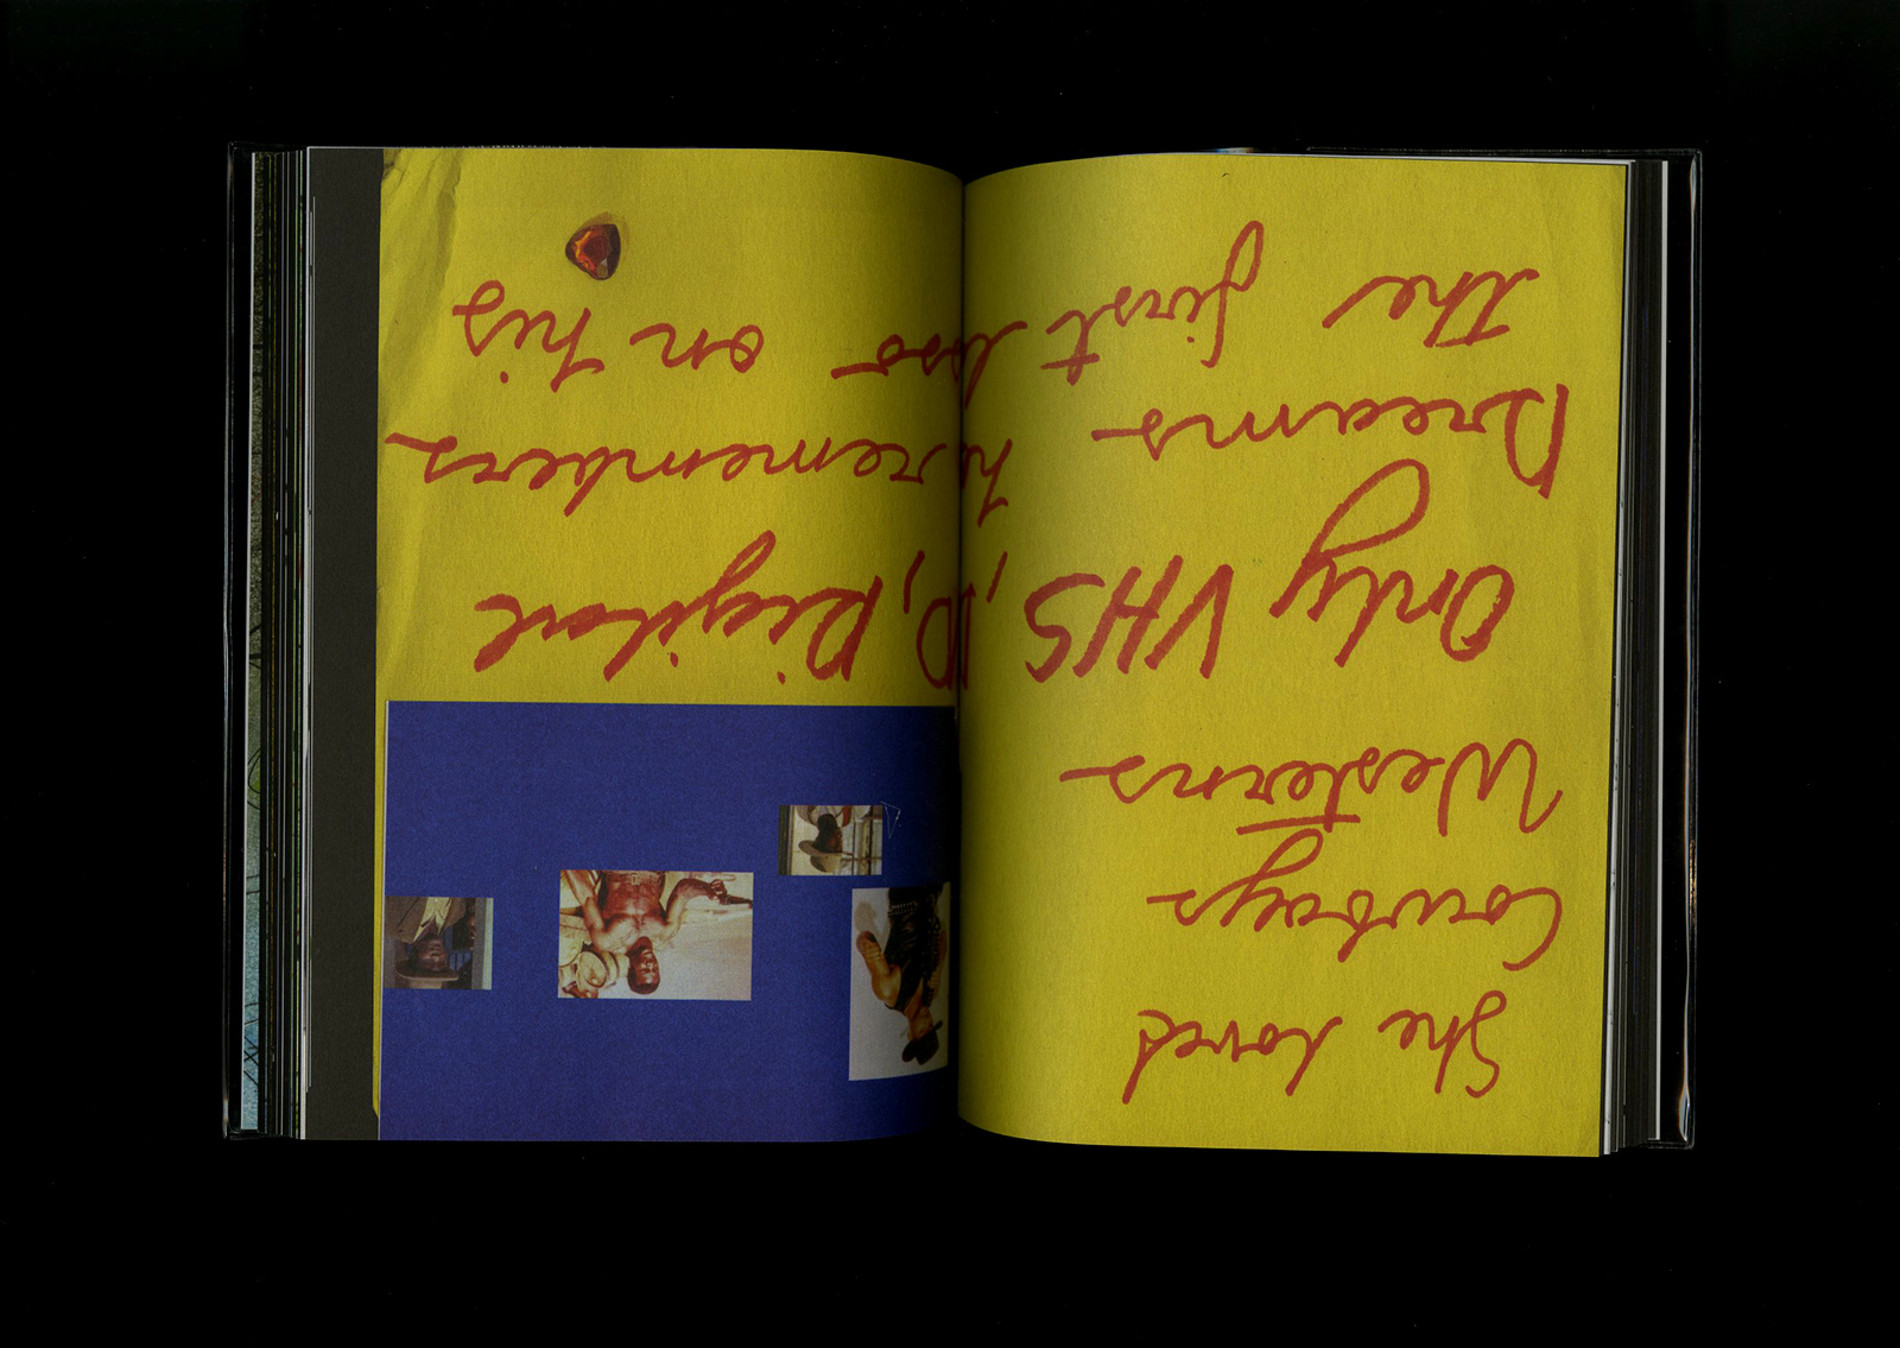 She loved
Cowboys
Westerns
Only VHS, Digital
Dreams he remembers
the first on his